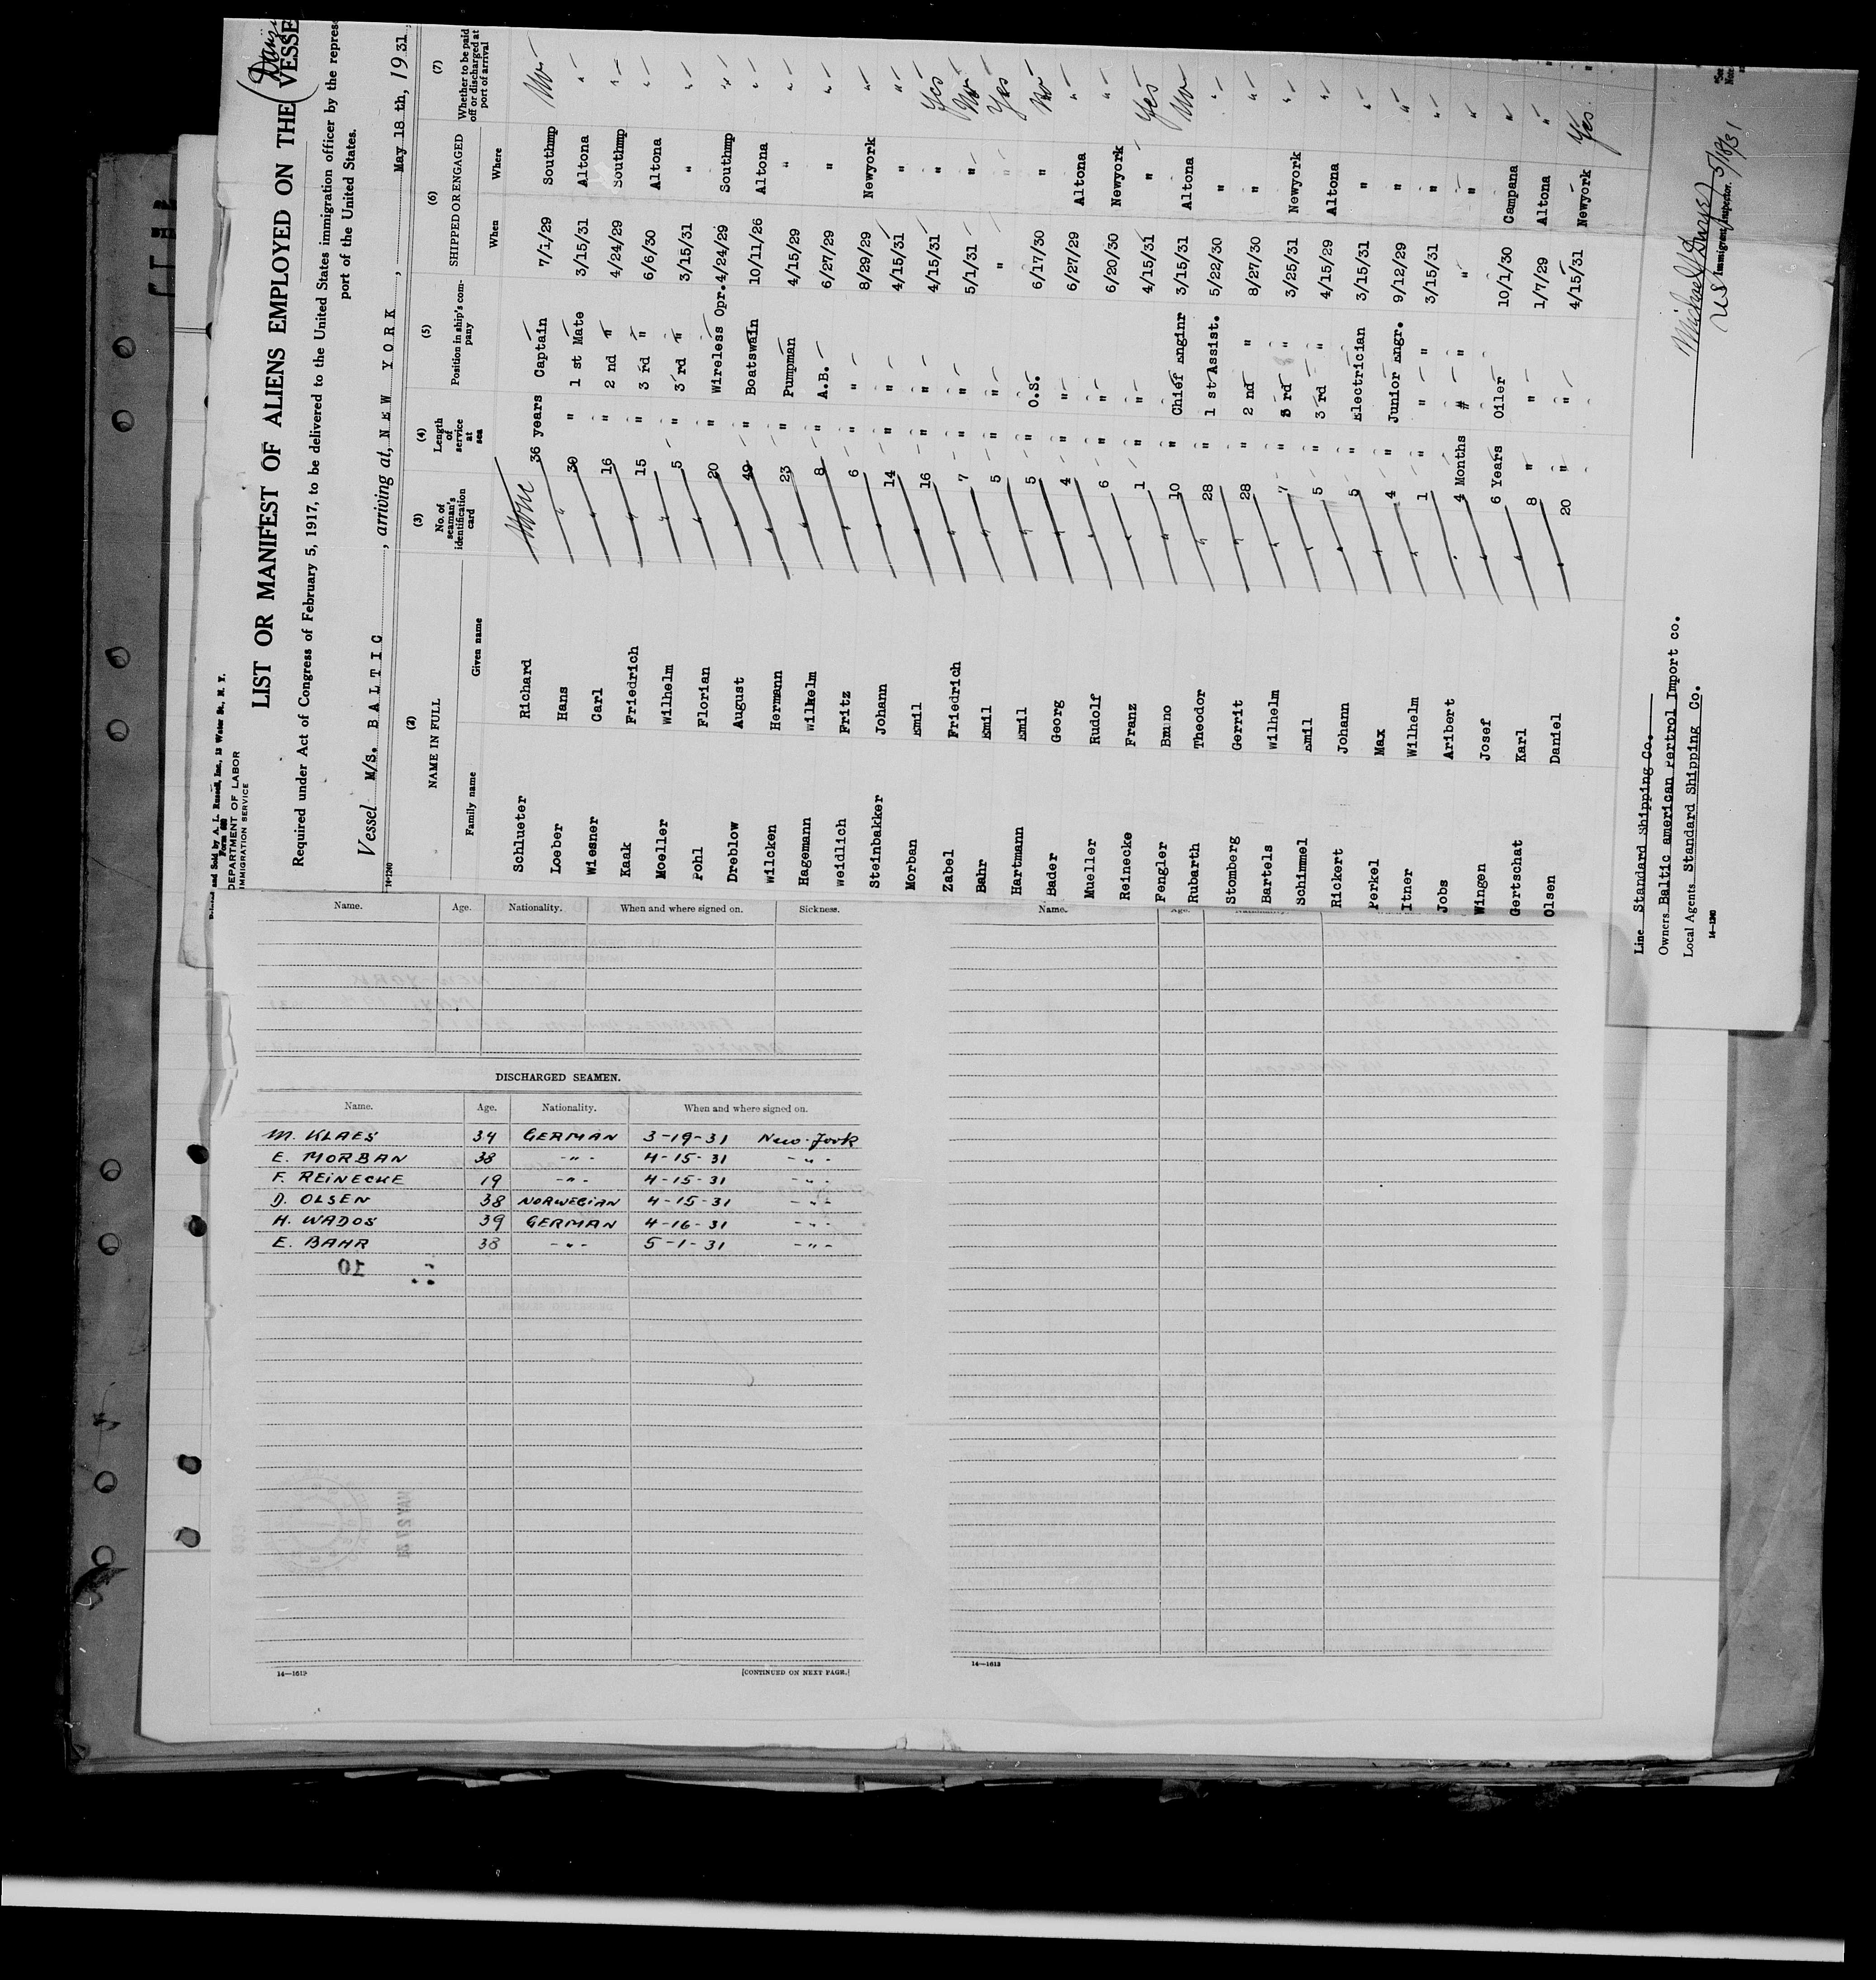 Printed and Sold by A. L. Russell, Inc., 13 Water St., N. Y.
DEPARTMENT OF LABOR
IMMIGRATION SERVICE
LIST OR MANIFEST OF ALIENS EMPLOYED ON THE VESSE
Required under Act of Congress of February 5, 1917, to be delivered to the United States immigration officer by the repres
port of the United States.
Vessel M/S. BALTIC, arriving at, NEW YORK, May 18 th, 1931
14-1240
(2) (3) (4) (5) (6) (7)
NAME IN FULL No. of seaman's identification card Length of service at sea Position in ship's company SHIPPED OR ENGAGED Whether to be paid off or discharged at port of arrival
Family name Given name When Where
Schlueter Richard None 36 years Captain 7/1/29 Southmp No
Loeber Hans " 30 " 1 st Mate 3/15/31 Altona "
Wiesner Carl " 16 " 2 nd " 4/24/29 Southmp "
Kaak Friedrich " 15 " 3 rd " 6/6/30 Altona "
Moeller Wilhelm " 5 " 3 rd " 3/15/31 " "
Pohl Florian " 20 " Wireless Opr. 4/24/29 Southmp "
Dreblow August " 49 " Boatswain 10/11/26 Altona "
Wilcken Hermann " 23 " Pumpman 4/15/29 " "
Hagemann Wilhelm " 8 " A.B. 6/27/29 " "
Weidlich Fritz " 6 " " 8/29/29 Newyork "
Steinbakker Johann " 14 " " 4/15/31 " "
Morban Emil " 16 " " 4/15/31 " Yes
Zabel Friedrich " 7 " " 5/1/31 " No
Bahr Emil " 5 " " " " Yes
Hartmann Emil " 5 " O.S. 6/17/30 " No
Bader Georg " 4 " " 6/27/29 Altona "
Mueller Rudolf " 6 " " 6/20/30 Newyork "
Reinecke Franz " 1 " " 4/15/31 " Yes
Fengler Bruno " 10 " Chief Enginr 3/15/31 Altona No
Rubarth Theodor " 28 " 1 st Assist. 5/22/30 " "
Stomberg Gerrit " 28 " 2 nd " 8/27/30 " "
Bartels Wilhelm " 7 " 3 rd " 3/25/31 Newyork "
Schimmel Emil " 5 " 3 rd " 4/15/29 Altona "
Rickert Johann " 5 " Electrician 3/15/31 " "
Perkel Max " 4 " Junior Engr. 9/12/29 " "
Itner Wilhelm " 1 " " " 3/15/31 " "
Jobs Aribert " 4 Months # " " " "
Wingen Josef " 6 Years Oiler 10/1/30 Campana "
Gertschat Karl " 8 " " 1/7/29 Altona "
Olsen Daniel " 20 " " 4/15/31 Newyork Yes
Line Standard Shipping Co.
Owners Baltic american Pertrol Import co.
Local Agents Standard Shipping Co.
14-1240
US Immigrant Inspector. 5/18/31
Name. Age. Nationality. When and where signed on. Sickness.
DISCHARGED SEAMEN.
Name. Age. Nationality. When and where signed on.
M. KLAES 34 GERMAN 3-19-31 New-York
E. MORBAN 38 -"- 4-15-31 -"-
F. REINECKE 19 -"- 4-15-31 -"-
D. OLSEN 38 NORWEGIAN 4-15-31 -"-
H. WADOS 39 GERMAN 4-16-31 -"-
E. BAHR 38 -"- 5-1-31 -"-
14—1613
[CONTINUED ON NEXT PAGE.]
Name. Age. Nationality.
14—1613